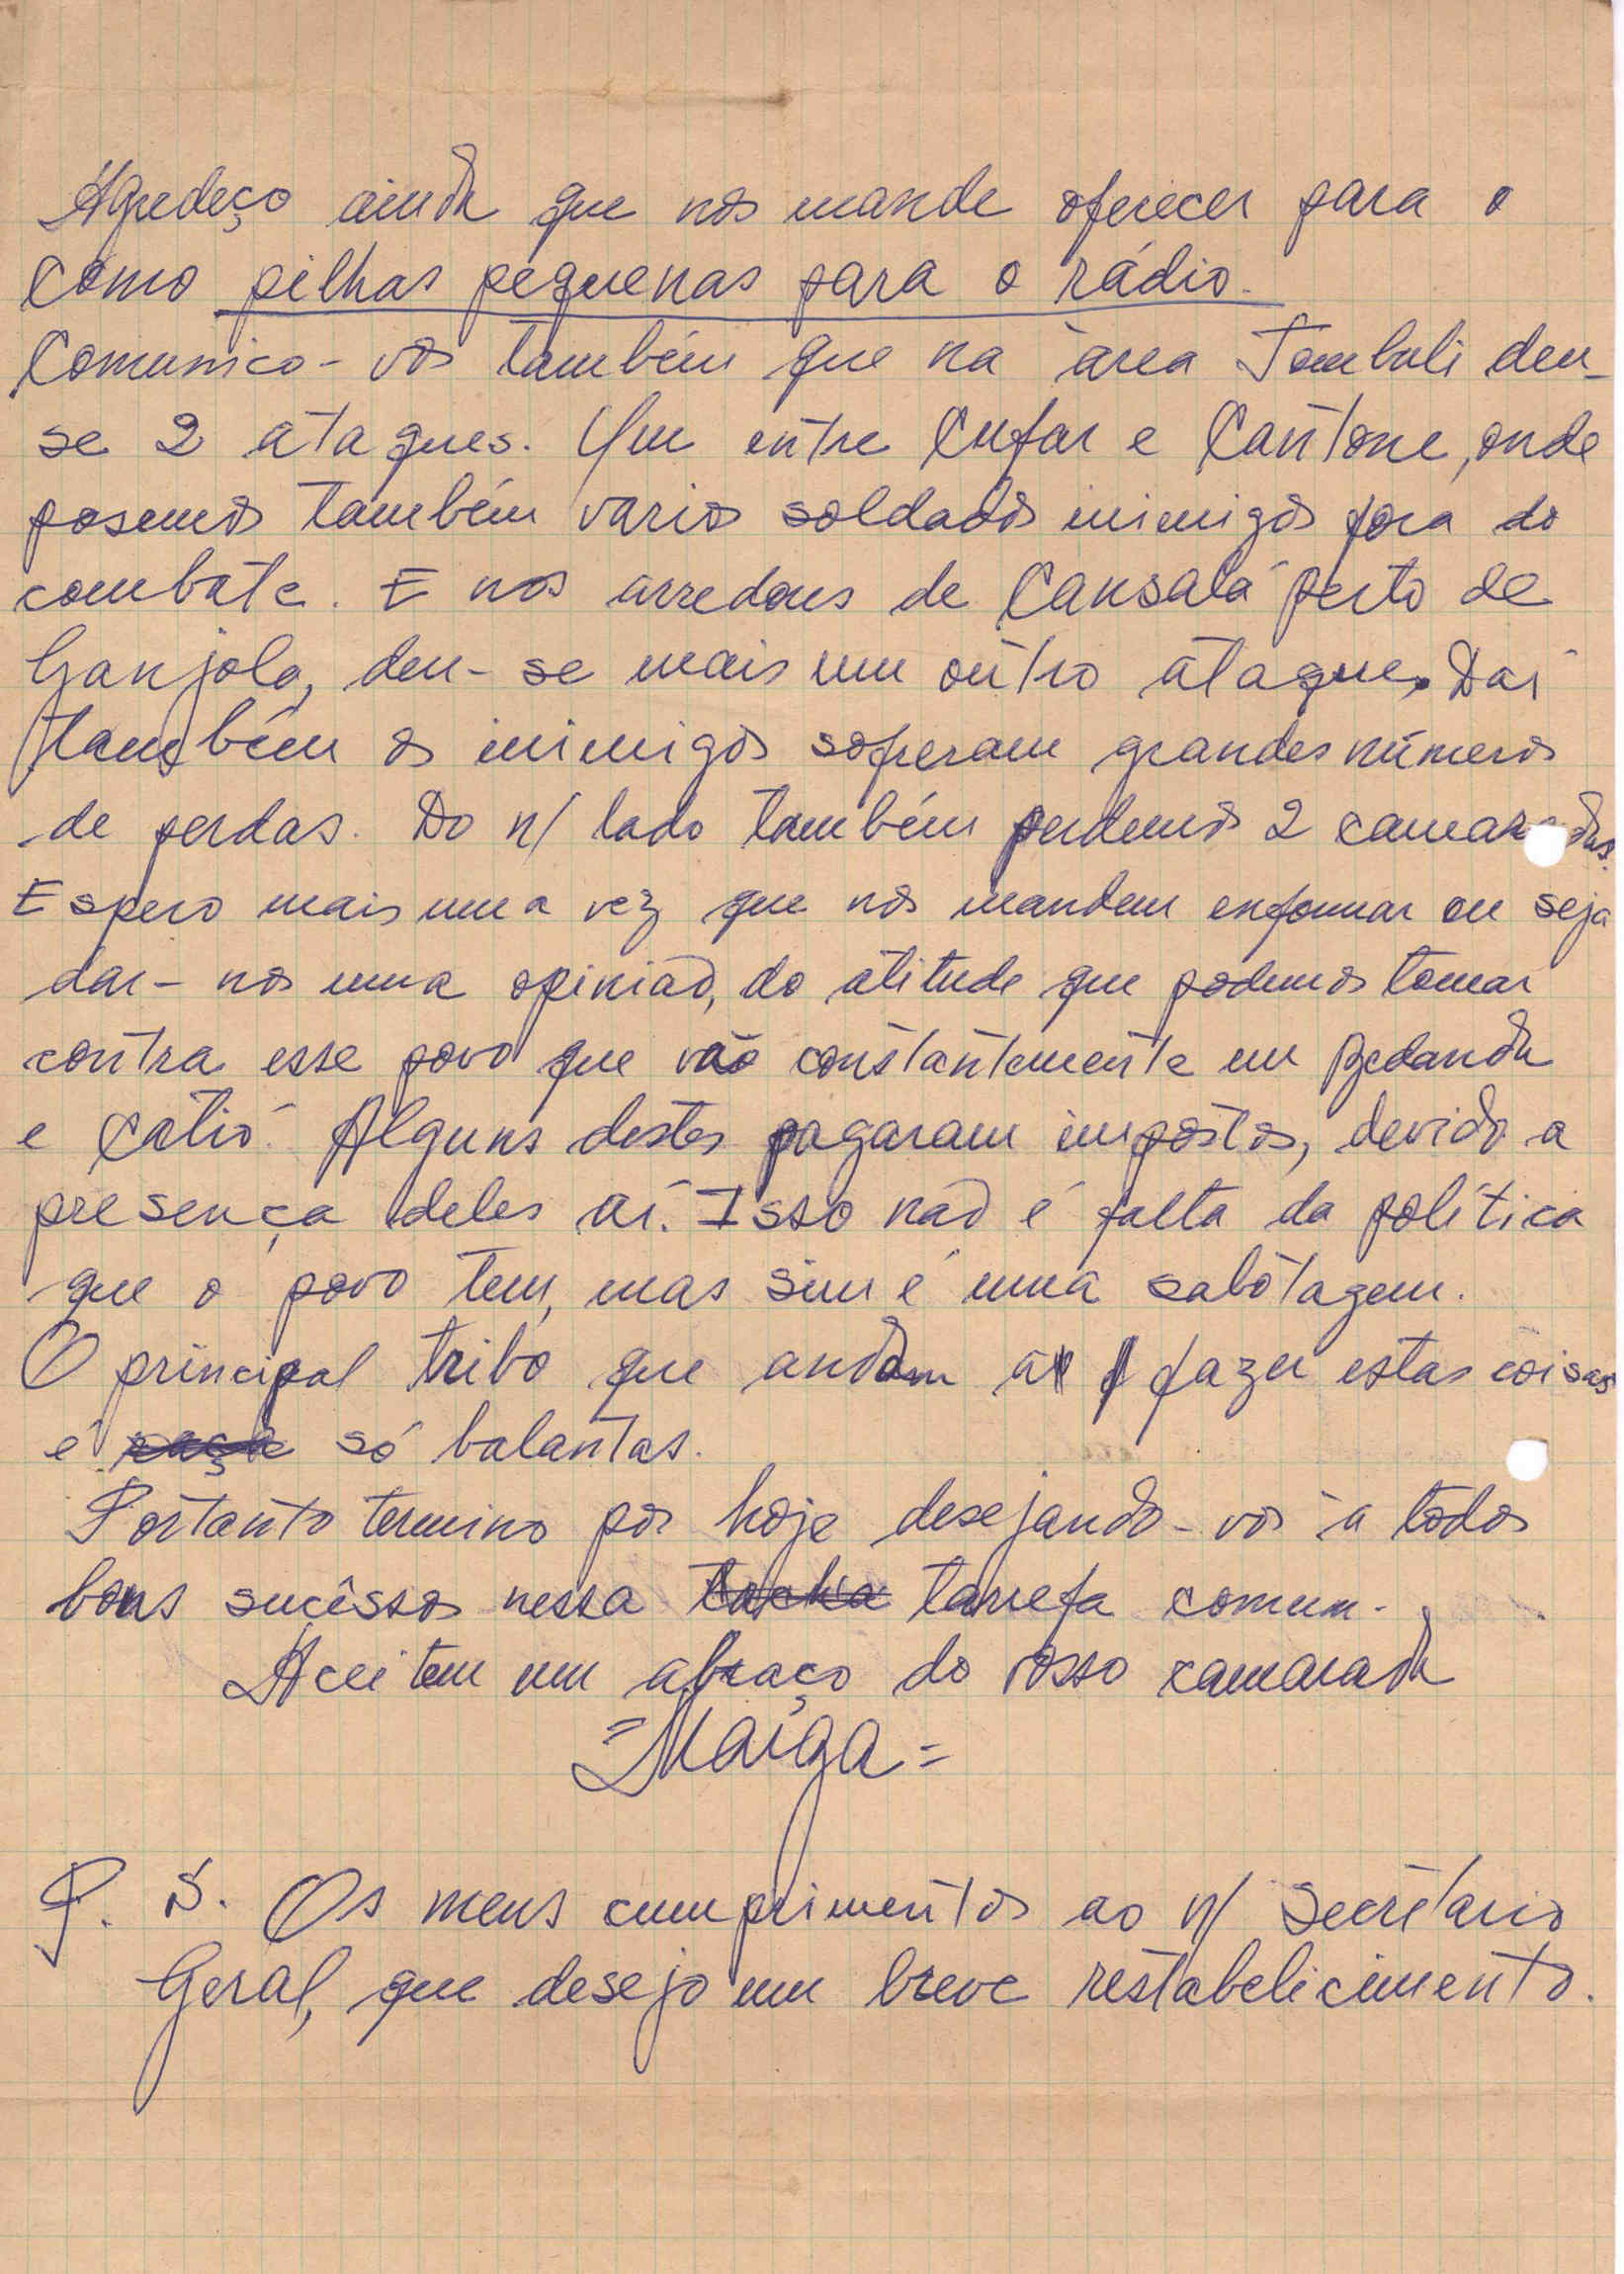 Agredeço ainda que nos mande oferecer para o
Como pilhas pequenas para o rádio.
Comunico-vos também que na àrea Tombali deu-
se 2 ataques. Um entre Cufar e Cantone, onde
posemos também varios soldados inimigos fora do
combate. E nos arredores de Cansalá perto de
Ganjola, deu-se mais um outro ataque. Daí
também os inimigos sofreram grandes números
de perdas. Do n/ lado também perdemos 2 camaradas.
Espero mais uma vez que nos mandem enformar ou seja
dar-nos uma opinião, do atitude que podemos tomar
contra esse povo que vão constantemente em Bedanda
e Catió. Alguns destes pagaram impostos, devido a
presença deles aí. Isso não é falta da política
que o povo tem, mas sim é uma sabotagem.
O principal tribo que andam a fazer estas coisas
é raça só balantas.
Portanto termino por hoje desejando-vos à todos
bons sucêssos nessa tarrefa comum.
Aceitem um abraço do vosso camarada
=Maïga=
P. S. Os meus cumprimentos ao n/ Secretário
Geral, que desejo um breve restabelicimento.